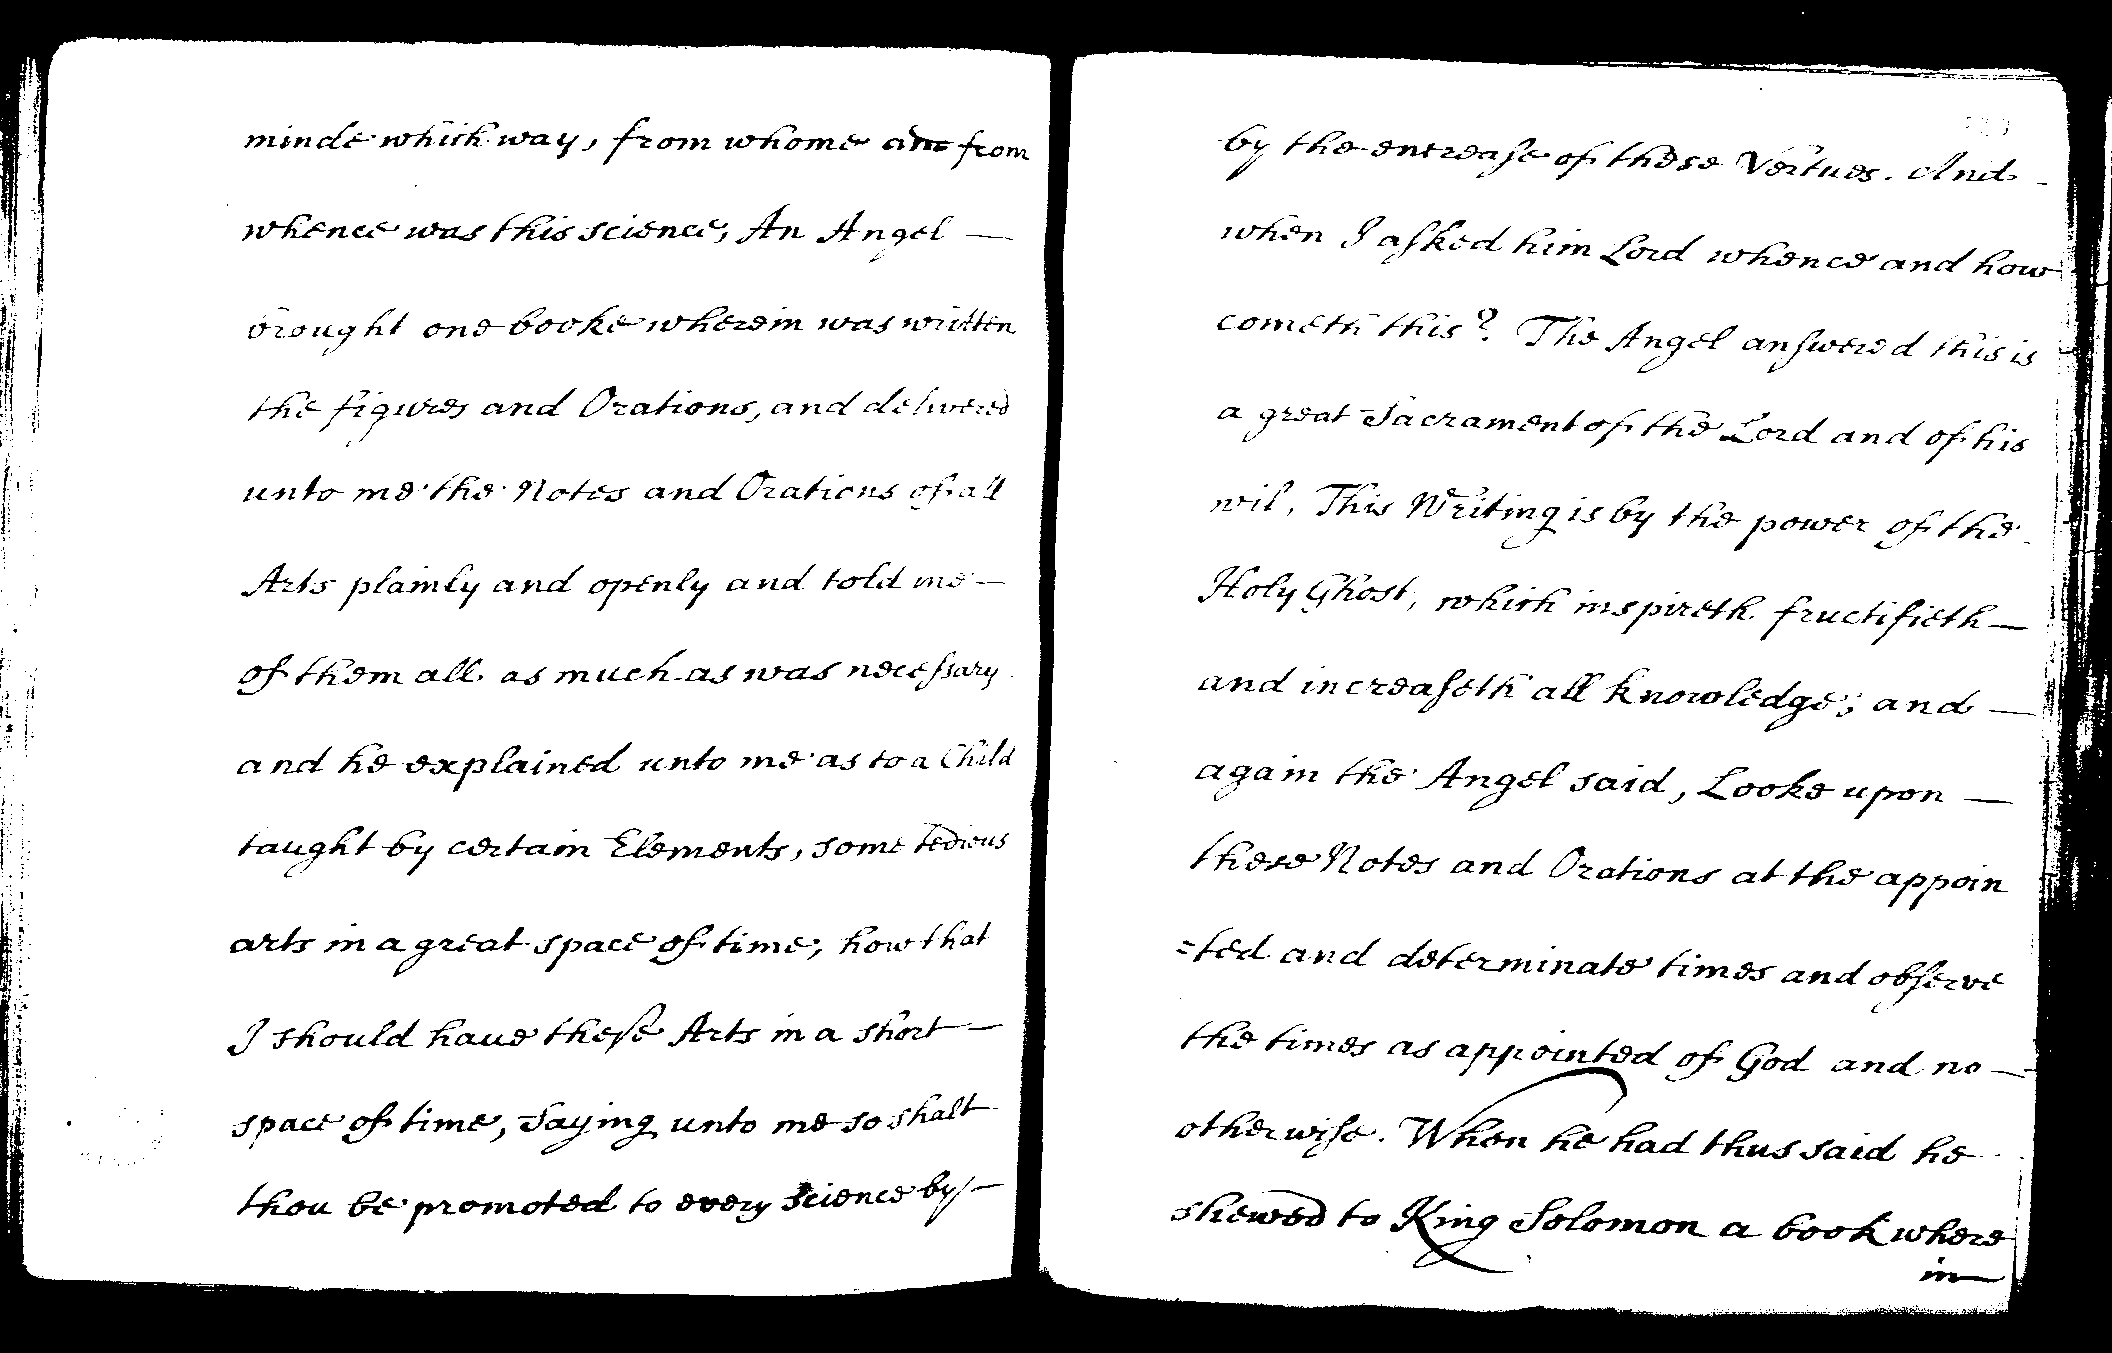 minde which way, from whome and from
whence was this science, An Angel —
brought one booke wherein was written
the figures and Orations, and delivered
unto me the Notes and Orations of all
Arts plainly and openly and told me —
of them all as much as was necessary
and he explained unto me as to a Child
taught by certain Elements, some tedious
arts in a great space of time, how that
I should haue these Arts in a short —
space of time, Saying unto me so shalt
thou be promoted to every science by —
by the encrease of these Vertues. And —
when I asked him Lord whence and how
cometh this? The Angel answered this is
a great Sacrament of the Lord and of his
wil, This Writing is by the power of the
Holy Ghost, which inspireth fructifieth —
and increaseth all knowledge; and —
again the Angel said, Looke upon —
these Notes and Orations at the appoin
=ted and determinate times and observe
the times as appointed of God and no —
otherwise. When he had thus said he
shewed to King Solomon a book where
in —